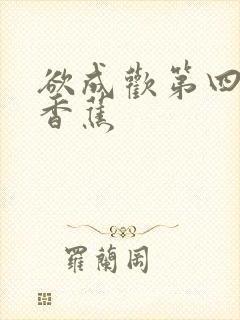 欲成歡第四
香蕉
羅蘭岡